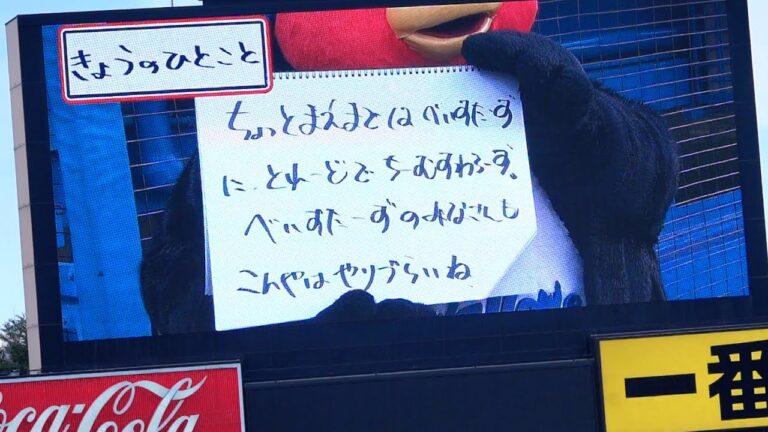 きょうのひとこと
ちょっとまえまではべいすたーず
に、とれーどでちーむすわろーず。
べいすたーずのみなさんも
こんやはやりづらいね
Coca-Cola
一番